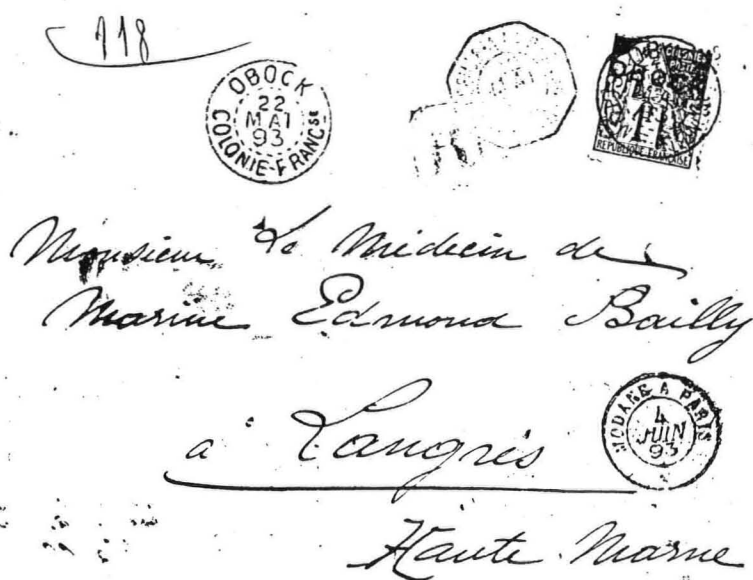 118
OBOCK
22
MAI
93
COLONIE-FRANCSE
OBOCK
REPUBLIQUE FRANCAISE
Monsieur Le Médecin de
Marine Edmond Bailly
à Langrès
MODANE A PARIS
4
JUIN
93
Haute Marne